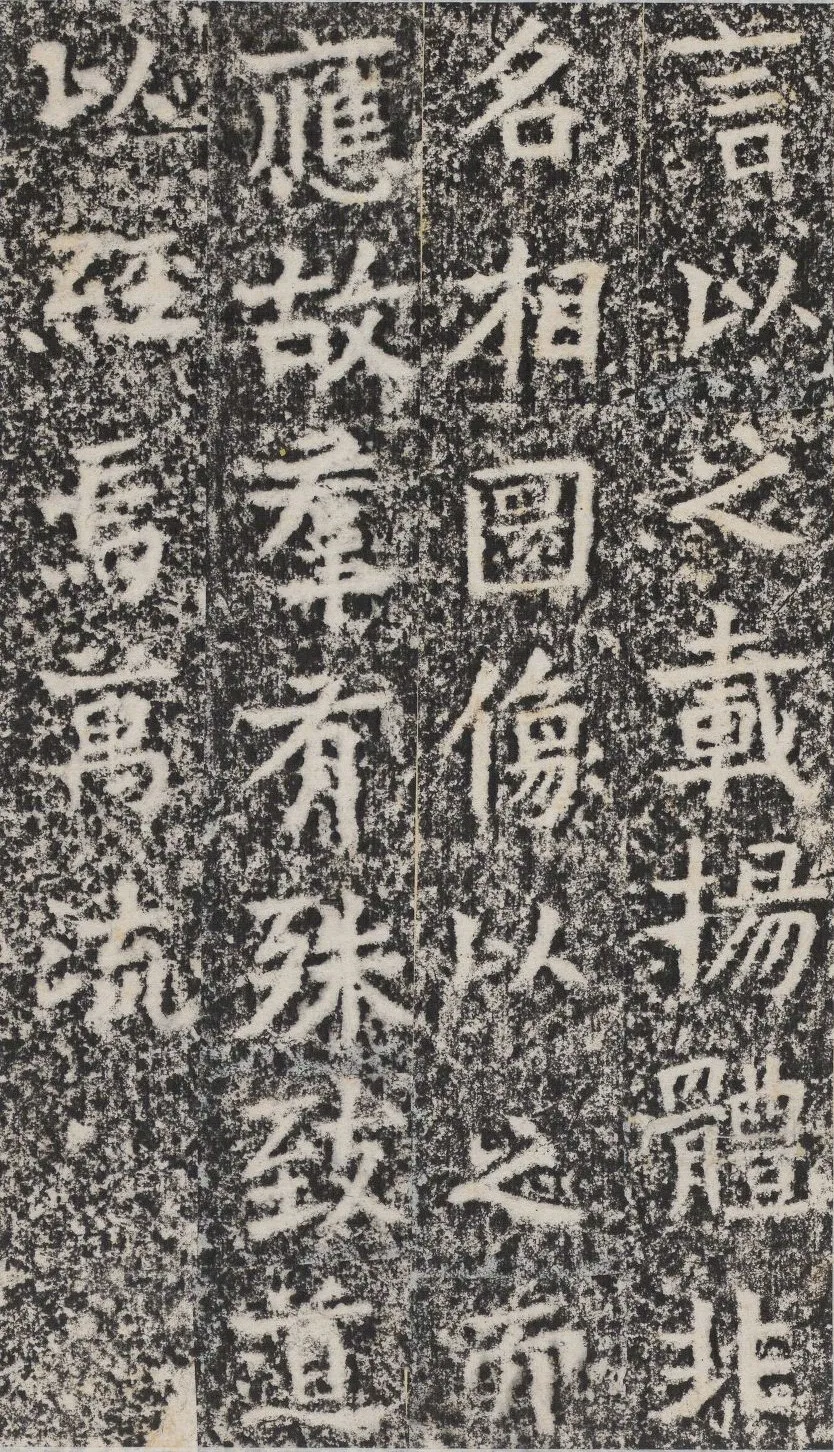 言以之載揚體非
名相圖像以之而
應故羣有殊致道
以經焉萬流